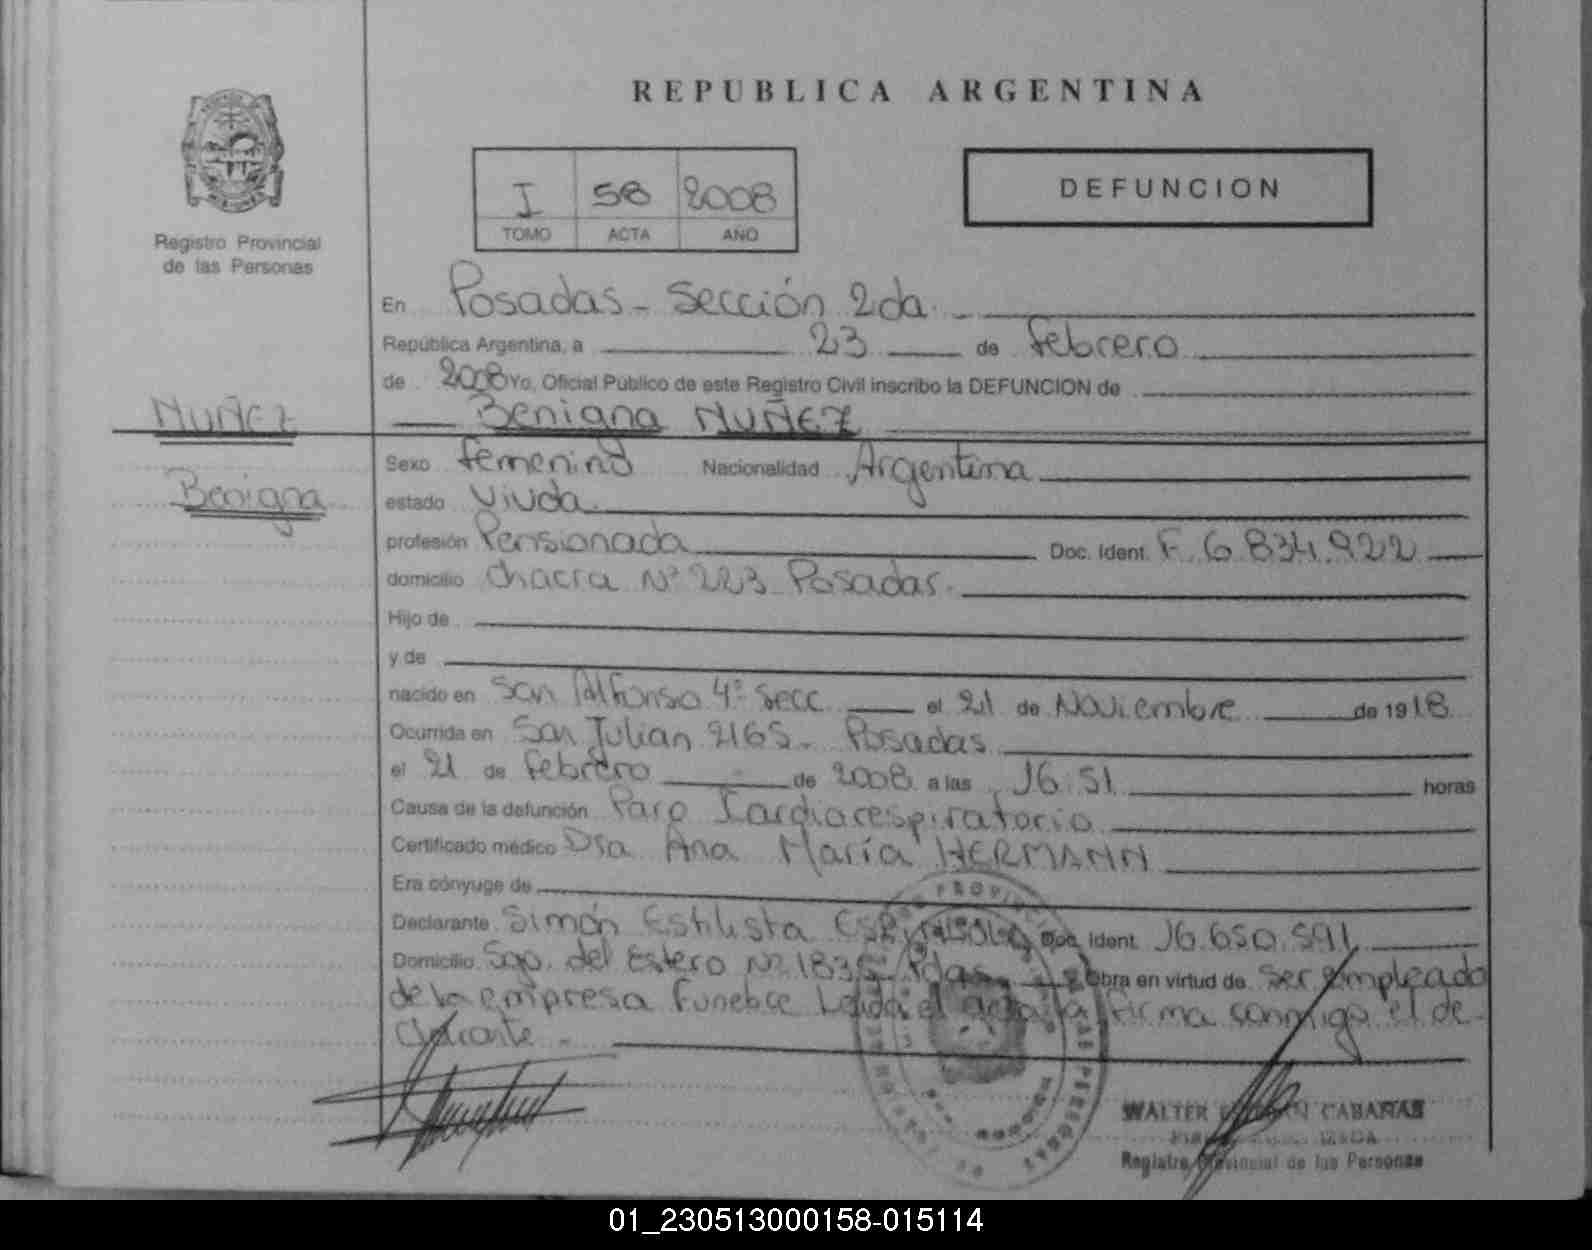 REPUBLICA ARGENTINA
Registro Provincial
de las Personas
I 58 2008
TOMO ACTA AÑO
DEFUNCION
En Posadas - Sección 2da.
República Argentina, a 23 de Febrero
de 2008 Yo, Oficial Público de este Registro Civil inscribo la DEFUNCION de
NUÑEZ
Benigna NUÑEZ
Benigna
Sexo Femenino Nacionalidad Argentina
estado Viuda.
profesión Pensionada Doc. Ident. F. 6.834.922
domicilio Chacra Nº 223 Posadas.
Hijo de
y de
nacido en San Alfonso 4º Secc el 21 de Noviembre de 1918
Ocurrida en San Julian 2165. Posadas
el 21 de Febrero de 2008 a las 16:51 horas
Causa de la defunción Paro Cardiorespiratorio
Certificado médico Dra Ana María HERMANN
Era cónyuge de
Declarante Simón Estilista Doc. Ident. 16.650.591
Domicilio Sgo. del Estero Nº 1835 Pdas. Obra en virtud de Ser empleado
de la empresa Funebre Leida el acta la firma conmigo el de-
clarante.
WALTER CABAÑAS
Registro Provincial de las Personas
01_230513000158-015114